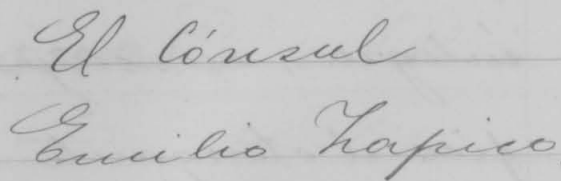 El Cónsul
Emilio Zapico